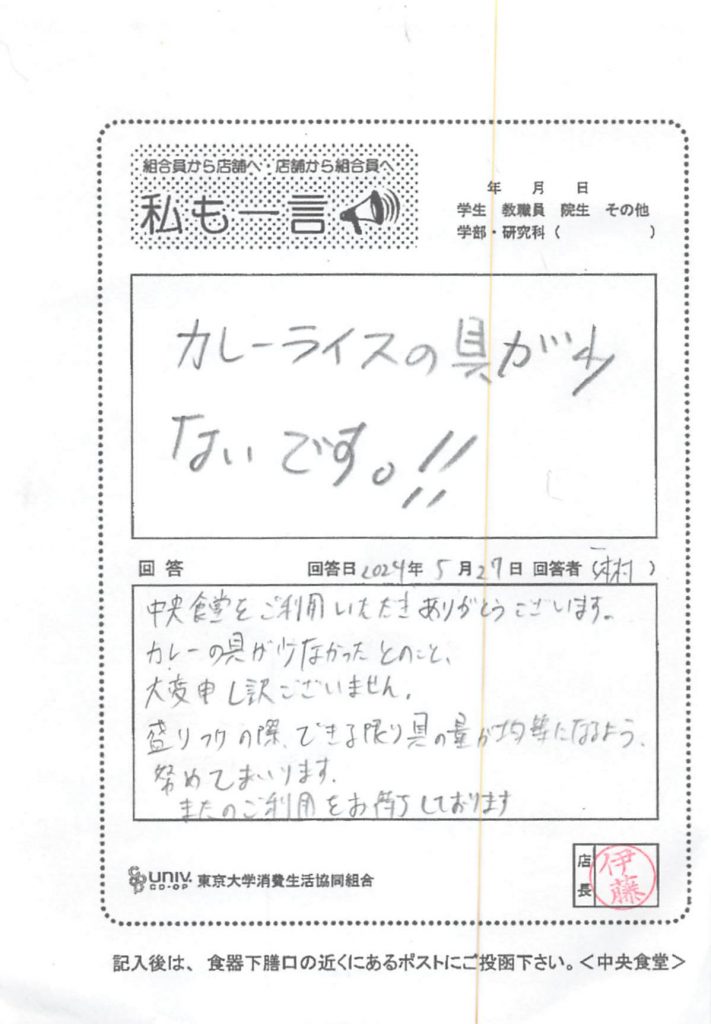 組合員から店舗へ・店舗から組合員へ
私も一言
年 月 日
学生 教職員 院生 その他
学部・研究科( )
カレーライスの具が少
ないです。!!
回答 回答日 2024年 5月27日 回答者 ( 村 )
中央食堂をご利用いただきありがとうございます。
カレーの具が少なかったとのこと、
大変申し訳ございません。
盛りつけの際、できる限り具の量が均等になるよう、
努めてまいります。
またのご利用をお待ちしております
UNIV. CO-OP 東京大学消費生活協同組合
店長 伊藤
記入後は、食器下膳口の近くにあるポストにご投函下さい。<中央食堂>